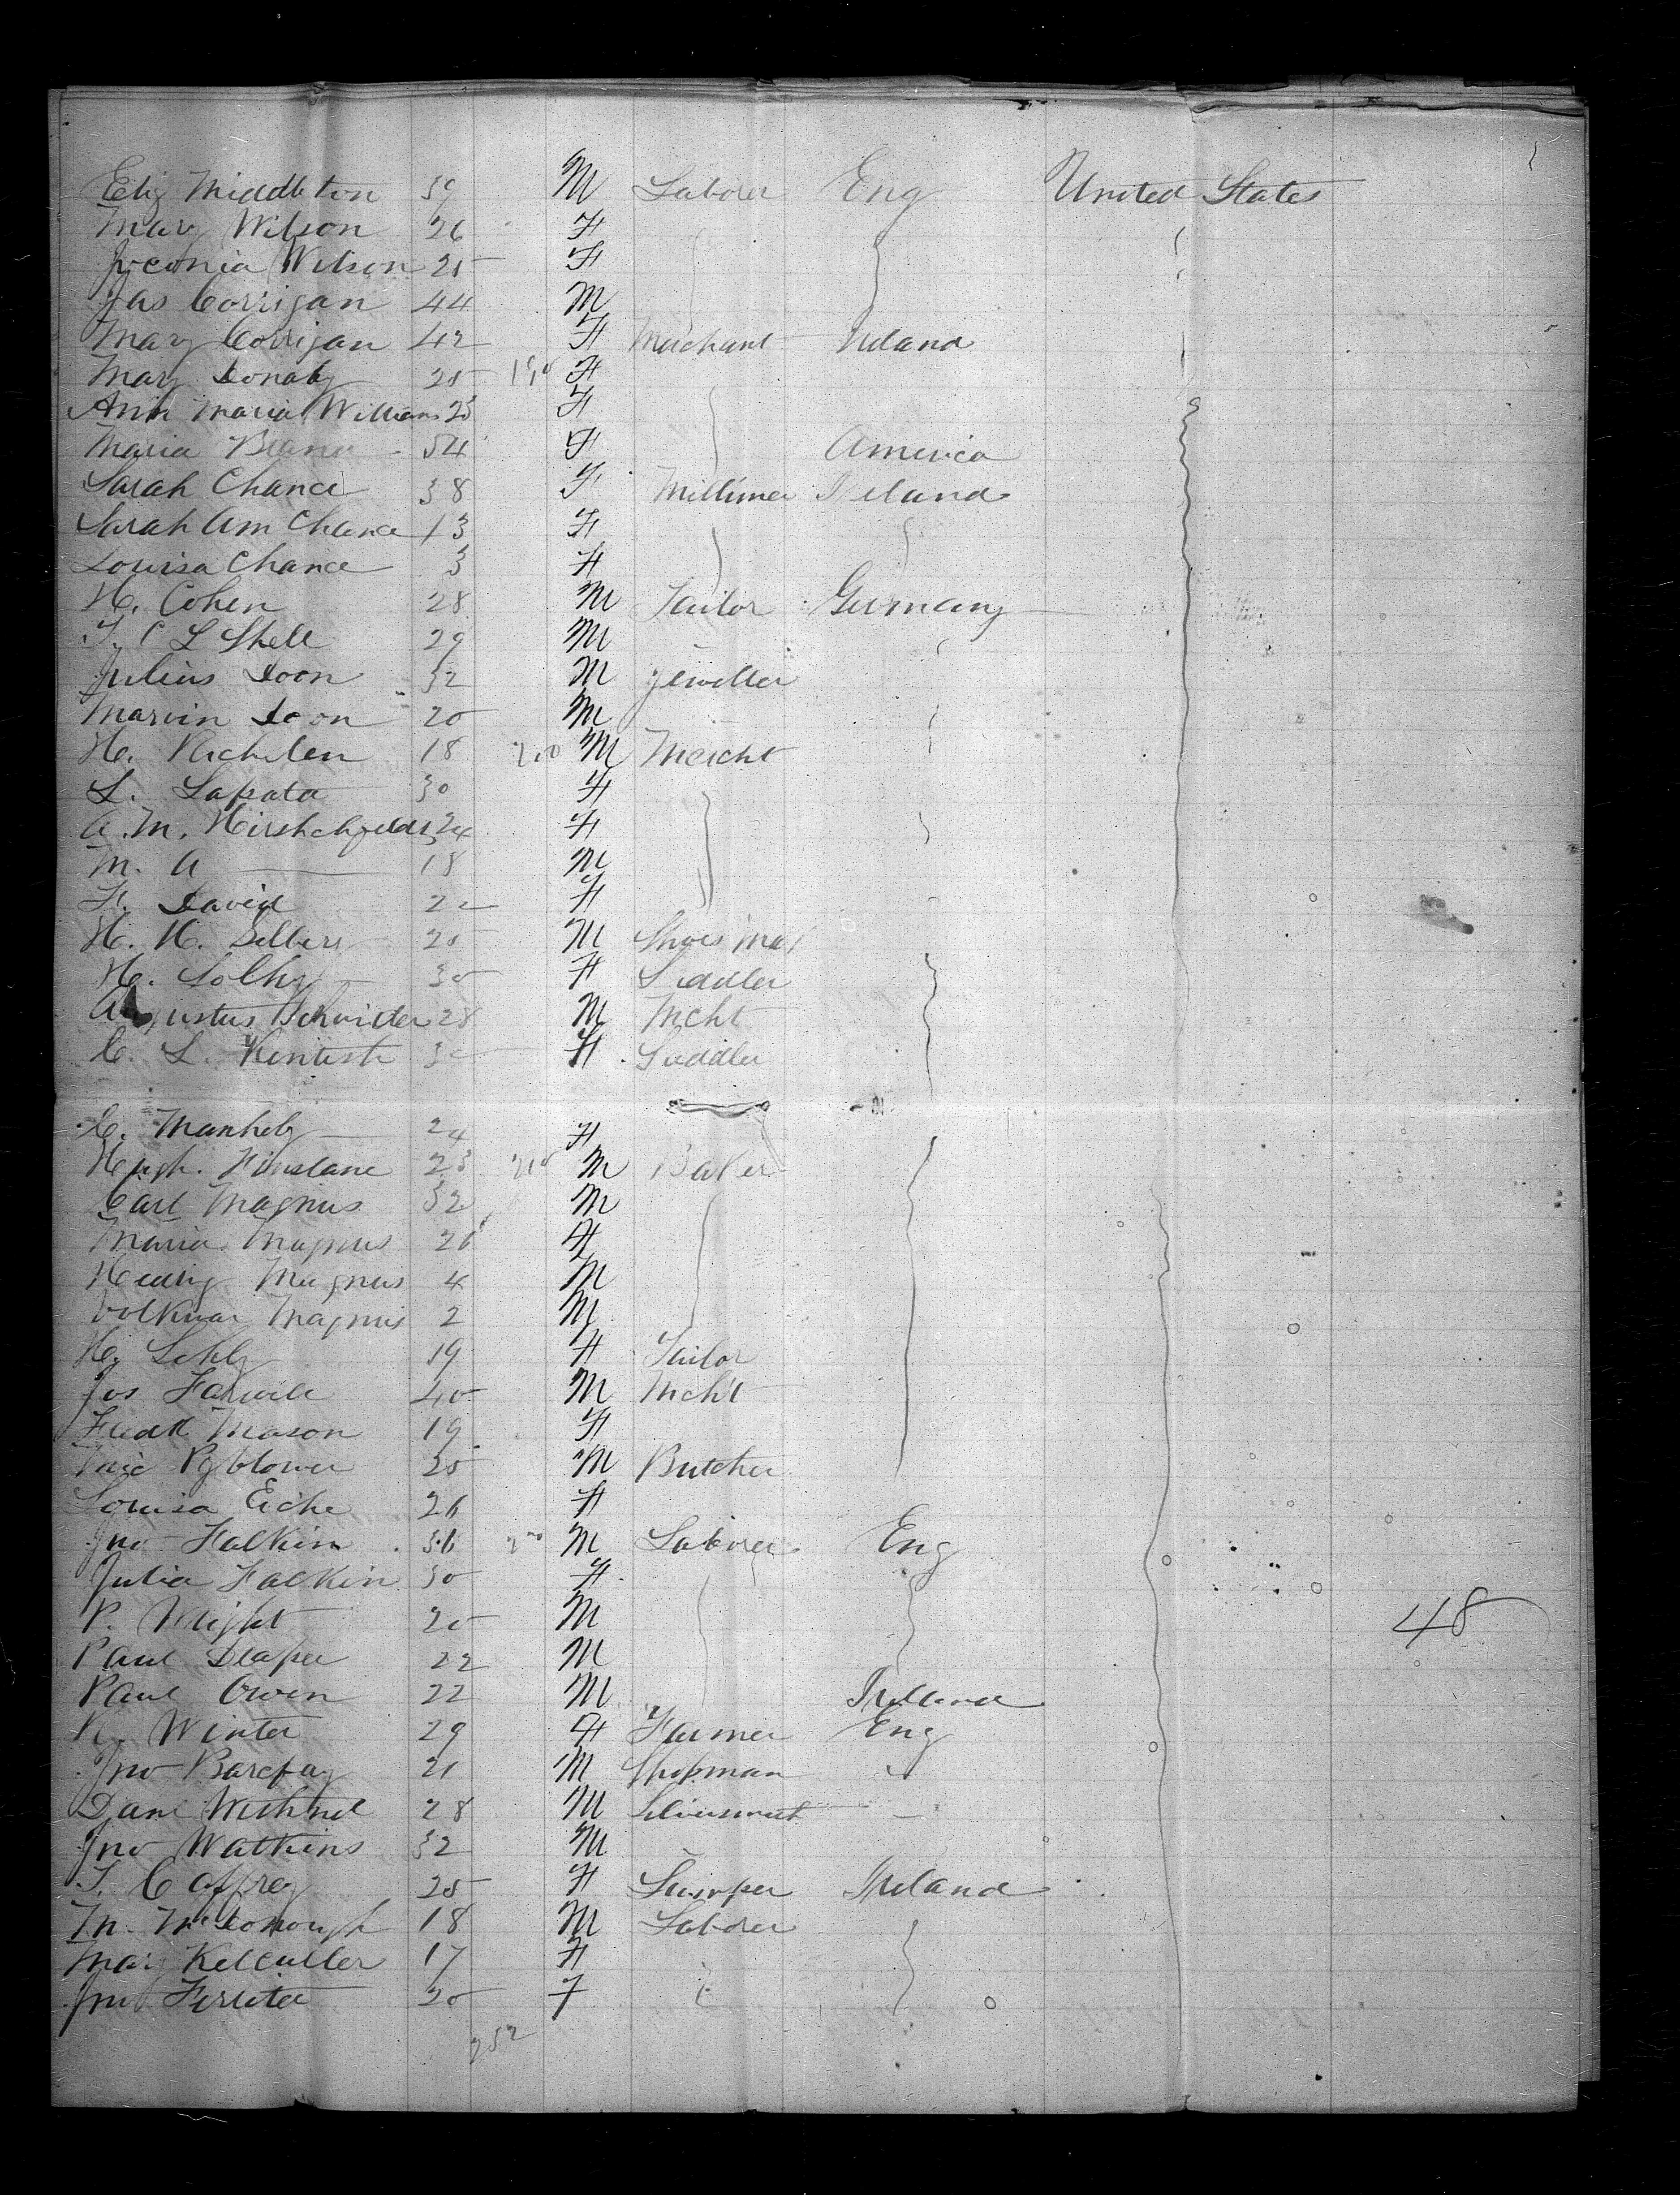 Eliz Middleton 59 M Laborer Eng United States
Mary Wilson 26 F
Wilson 25 F
Jas Corrigan 44 M
Mary Corrigan 42 F Merchant Ireland
Mary 25 190 F
Ann Maria Williams 25 F
Maria 54 F America
Sarah Chance 38 F Milliner Ireland
Sarah Ann Chance 13 F
Louisa Chance 3 F
H. Cohen 28 M Tailor Germany
T. C L Shell 29 M
Julius Doon 32 M Jeweller
Marvin Doon 20 M
H. 18 200 M Mercht
L. Lapata 30 F
A. M. 24 F
M. A — 18 M
F. David 22 F
H. H. 25 M
H. 30 F Sadler
Augustus 28 M Mcht
C. L. Kentish 30 F Saddler
C. 24 F
Hugh 23 210 M Baker
Carl Magnus 32 M
Maria Magnus 26 F
Hedwig Magnus 4 M
Volkmar Magnus 2 M
H. 19 F Tailor
Jos 40 M Mcht
Fredk Mason 19 F
25 M Butcher
Louisa Eiche 26 F
Jno Falkin 36 220 M Laborer Eng
Julia Falkin 30 F
P. Wright 20 M
Paul Draper 22 M
Paul Owen 22 M Ireland
Winter 29 F Farmer Eng
Jno Barclay 21 M Shopman
Danl 28 M Silversmith
Jno Watkins 32 M
T. Caffrey 25 F Ireland
M. McDonough 18 M Laborer
Mary 17 F
Jno 20 F
252
48